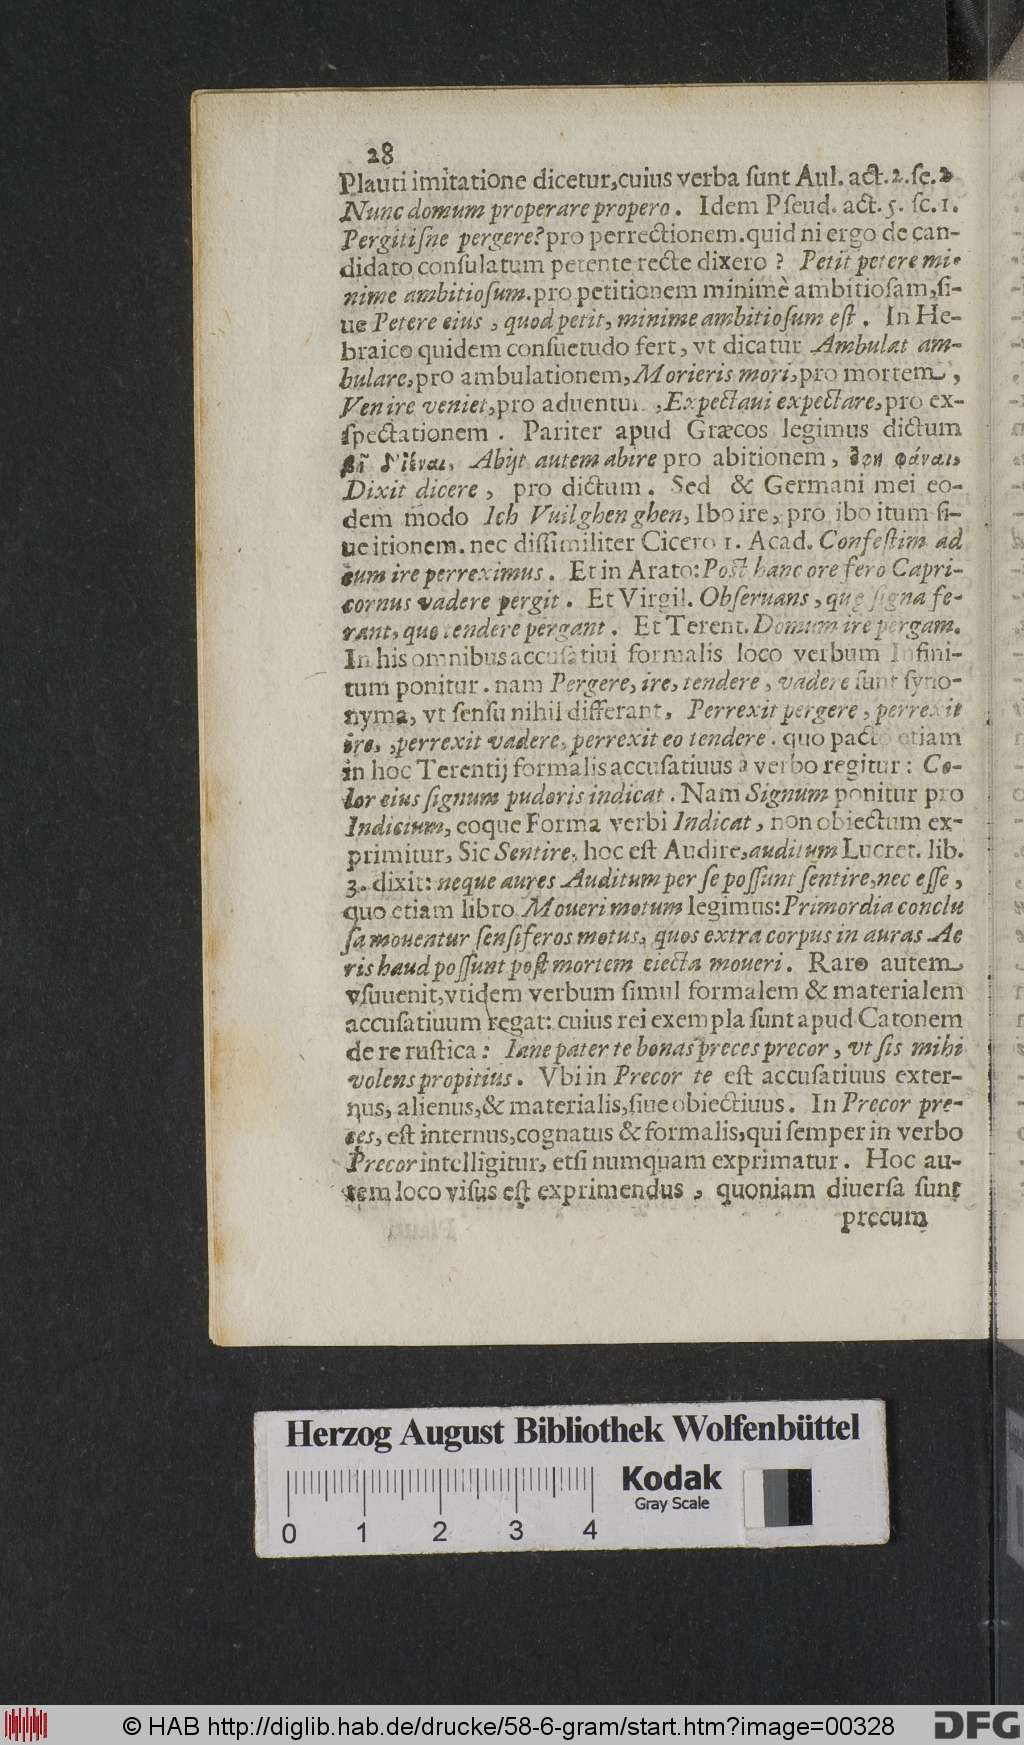 28
Plauti imitatione dicetur,cuius verba ſunt Aul. act.2.ſc.2
Nunc domum properare propero. Idem Pſeud. act. 5. ſc.1.
Pergitiſne pergere? pro perrectionem.quid ni ergo de can-
didato conſulatum petente recte dixero ? Petit petere mi-
nime ambitioſum.pro petitionem minimè ambitioſam,ſi-
ue Petere eius , quod petit, minime ambitioſum eſt. In He-
braico quidem conſuetudo fert, vt dicatur Ambulat am-
bulare,pro ambulationem,Morieris mori,pro mortem ,
Venire veniet,pro ,Expectaui expectare,pro ex-
ſpectationem . Pariter apud Græcos legimus dictum
βῆ δ'ἰέναι, Abijt autem abire pro abitionem, ἔφη φάναι,
Dixit dicere , pro dictum. Sed & Germani mei eo-
dem modo Ich Vuilghen ghen, Ibo ire, pro ibo itum ſi-
ue itionem. nec diſſimiliter Cicero 1. Acad. Confeſtim ad
eum ire perreximus. Et in Arato:Poſt hanc ore fero Capri-
cornus vadere pergit. Et Virgil. Obſeruans , quę ſigna fe-
rant, quo tendere pergant. Et Terent. Domum ire pergam.
In his omnibus accuſatiui formalis loco verbum Infini-
tum ponitur. nam Pergere, ire, tendere , vadere ſunt ſyno-
nyma, vt ſenſu nihil differant. Perrexit pergere, perrexit
ire, ,perrexit vadere, perrexit eo tendere. quo pacto etiam
in hoc Terentij formalis accuſatiuus à verbo regitur: Co-
lor eius ſignum pudoris indicat. Nam Signum ponitur pro
Indicium, eoque Forma verbi Indicat, non obiectum ex-
primitur, Sic Sentire, hoc eſt Audire,auditum Lucret. lib.
3. dixit: neque aures Auditum per ſe poſſunt ſentire,nec eſſe ,
quo etiam libro Moueri motum legimus:Primordia conclu
ſa mouentur ſenſiferos motus, quos extra corpus in auras Ae
ris haud poſſunt poſt mortem eiecta moueri. Raro autem
vſuuenit,vt idem verbum ſimul formalem & materialem
accuſatiuum regat: cuius rei exempla ſunt apud Catonem
de re ruſtica: Iane pater te bonas preces precor , vt ſis mihi
volens propitius. Vbi in Precor te eſt accuſatiuus exter-
nus, alienus,& materialis,ſiue obiectiuus. In Precor pre-
ces, eſt internus,cognatus & formalis,qui ſemper in verbo
Precor intelligitur, etſi numquam exprimatur. Hoc au-
tem loco viſus eſt exprimendus , quoniam diuerſa ſunt
precum
Herzog August Bibliothek Wolfenbüttel
Kodak
Gray Scale
0 1 2 3 4
© HAB http://diglib.hab.de/drucke/58-6-gram/start.htm?image=00328
DFG